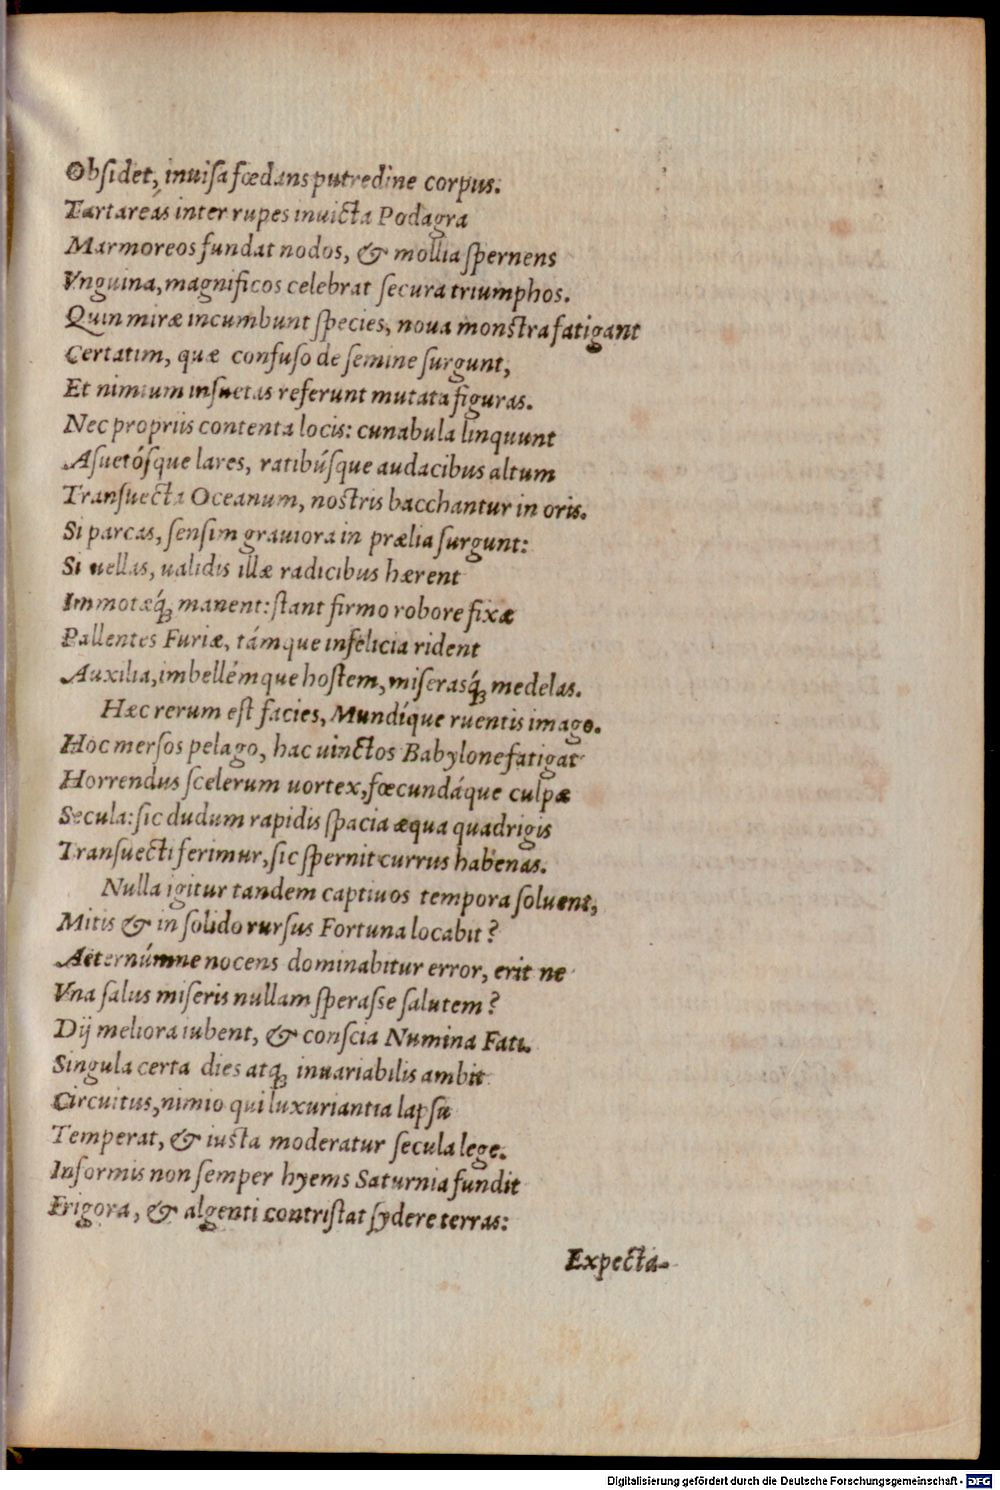 Obſidet, inuiſa fœdans putredine corpus.
Tartareás inter rupes inuicta Podagra
Marmoreos fundat nodos, & mollia ſpernens
Vnguina, magnificos celebrat ſecura triumphos.
Quin miræ incumbunt ſpecies, noua monſtra fatigant
Certatim, quæ confuſo de ſemine ſurgunt,
Et nimium inſuetas referunt mutata figuras.
Nec propriis contenta locis: cunabula linquunt
Aſuetóſque lares, ratibúſque audacibus altum
Tranſuecta Oceanum, noſtris bacchantur in oris.
Si parcas, ſenſim grauiora in prælia ſurgunt:
Si uellas, ualidis illæ radicibus hærent
Immotæq́; manent: ſtant firmo robore fixæ
Pallentes Furiæ, támque infelicia rident
Auxilia, imbellémque hoſtem, miſerasq́; medelas.
Hæc rerum eſt facies, Mundíque ruentis imago.
Hoc mersos pelago, hac uinctos Babylone fatigat
Horrendus ſcelerum uortex, fœcundáque culpæ
Secula: ſic dudum rapidis ſpacia æqua quadrigis
Tranſuecti ferimur, ſic ſpernit currus habenas.
Nulla igitur tandem captiuos tempora ſoluent,
Mitis & in ſolido rurſus Fortuna locabit?
Aeternúmne nocens dominabitur error, erit ne
Vna ſalus miſeris nullam ſperaſſe ſalutem?
Dij meliora iubent, & conſcia Numina Fati.
Singula certa dies atq; inuariabilis ambit
Circuitus, nimio qui luxuriantia lapſu
Temperat, & iuſta moderatur ſecula lege.
Informis non ſemper hyems Saturnia fundit
Frigora, & algenti contriſtat ſydere terras:
Expecta-
Digitalisierung gefördert durch die Deutsche Forschungsgemeinschaft - DFG